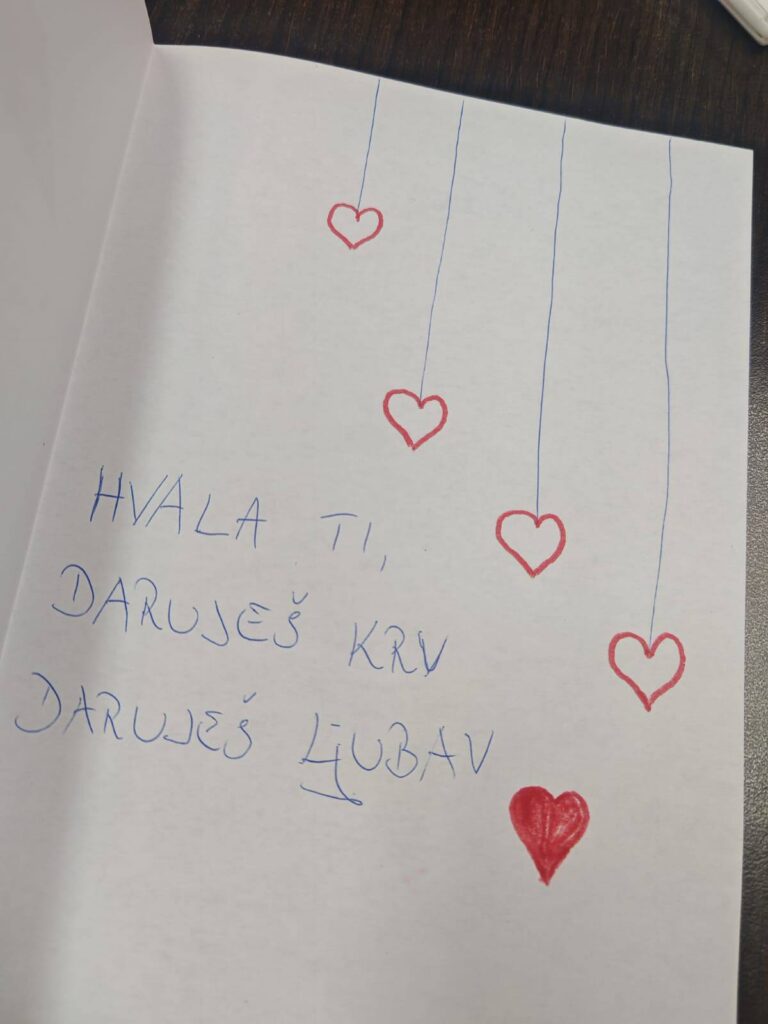 HVALA TI,
DARUJEŠ KRV
DARUJEŠ LJUBAV